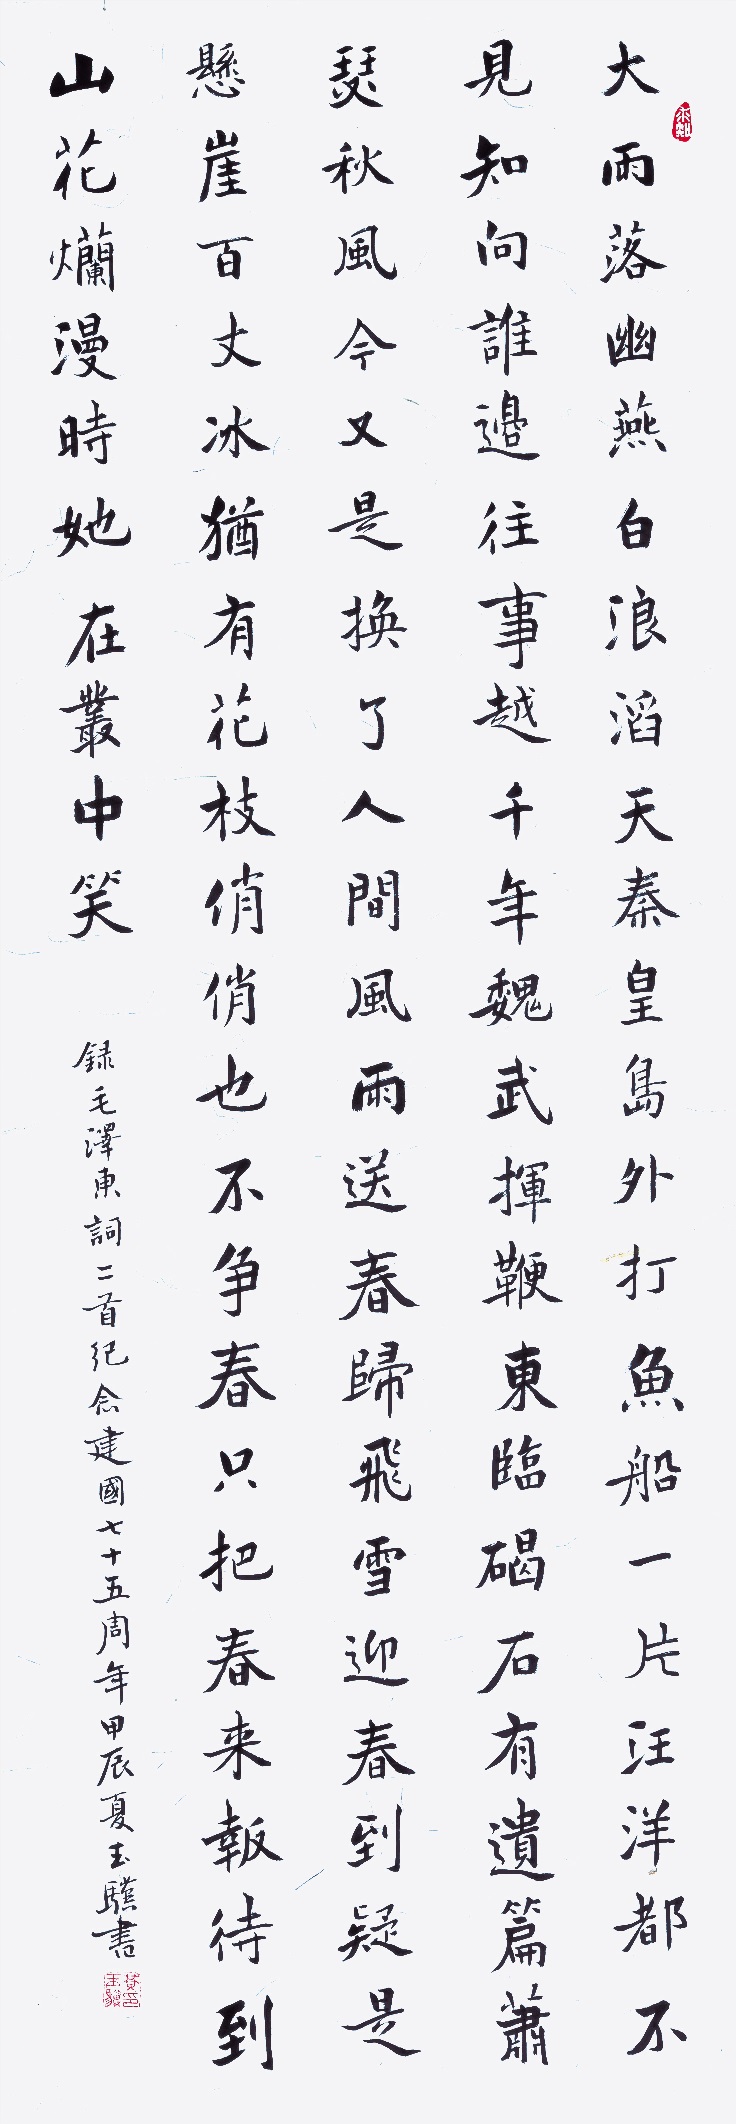 大雨落幽燕白浪滔天秦皇島外打魚船一片汪洋都不
見知向誰邊往事越千年魏武揮鞭東臨碣石有遺篇蕭
瑟秋風今又是換了人間風雨送春歸飛雪迎春到疑是
懸崖百丈冰猶有花枝俏俏也不争春只把春来報待到
山花爛漫時她在叢中笑
録毛澤東詞二首紀念建國七十五周年甲辰夏玉書